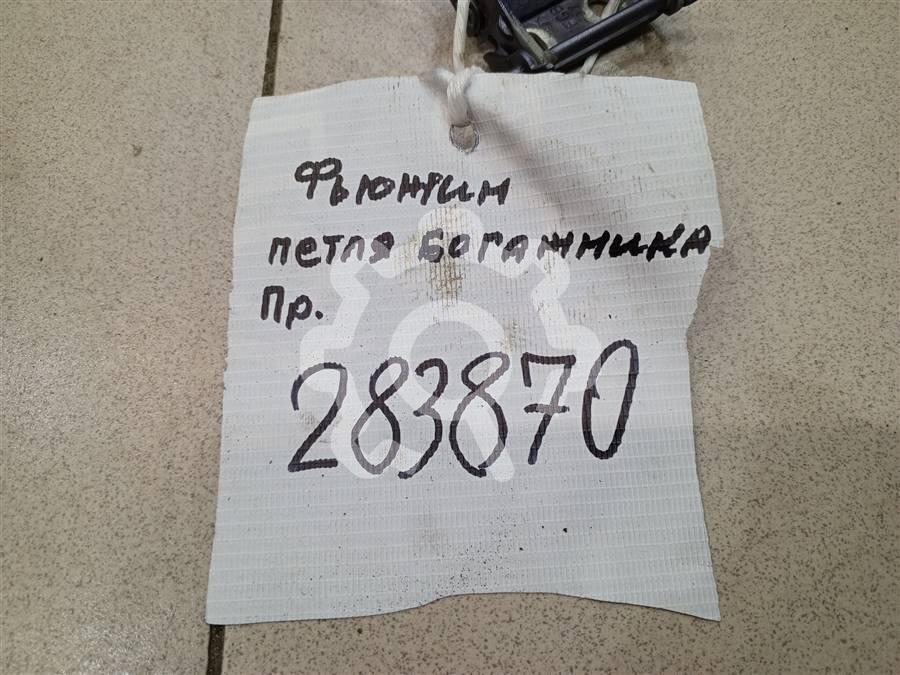 Фьюжин
петля богажника
Пр.
283870